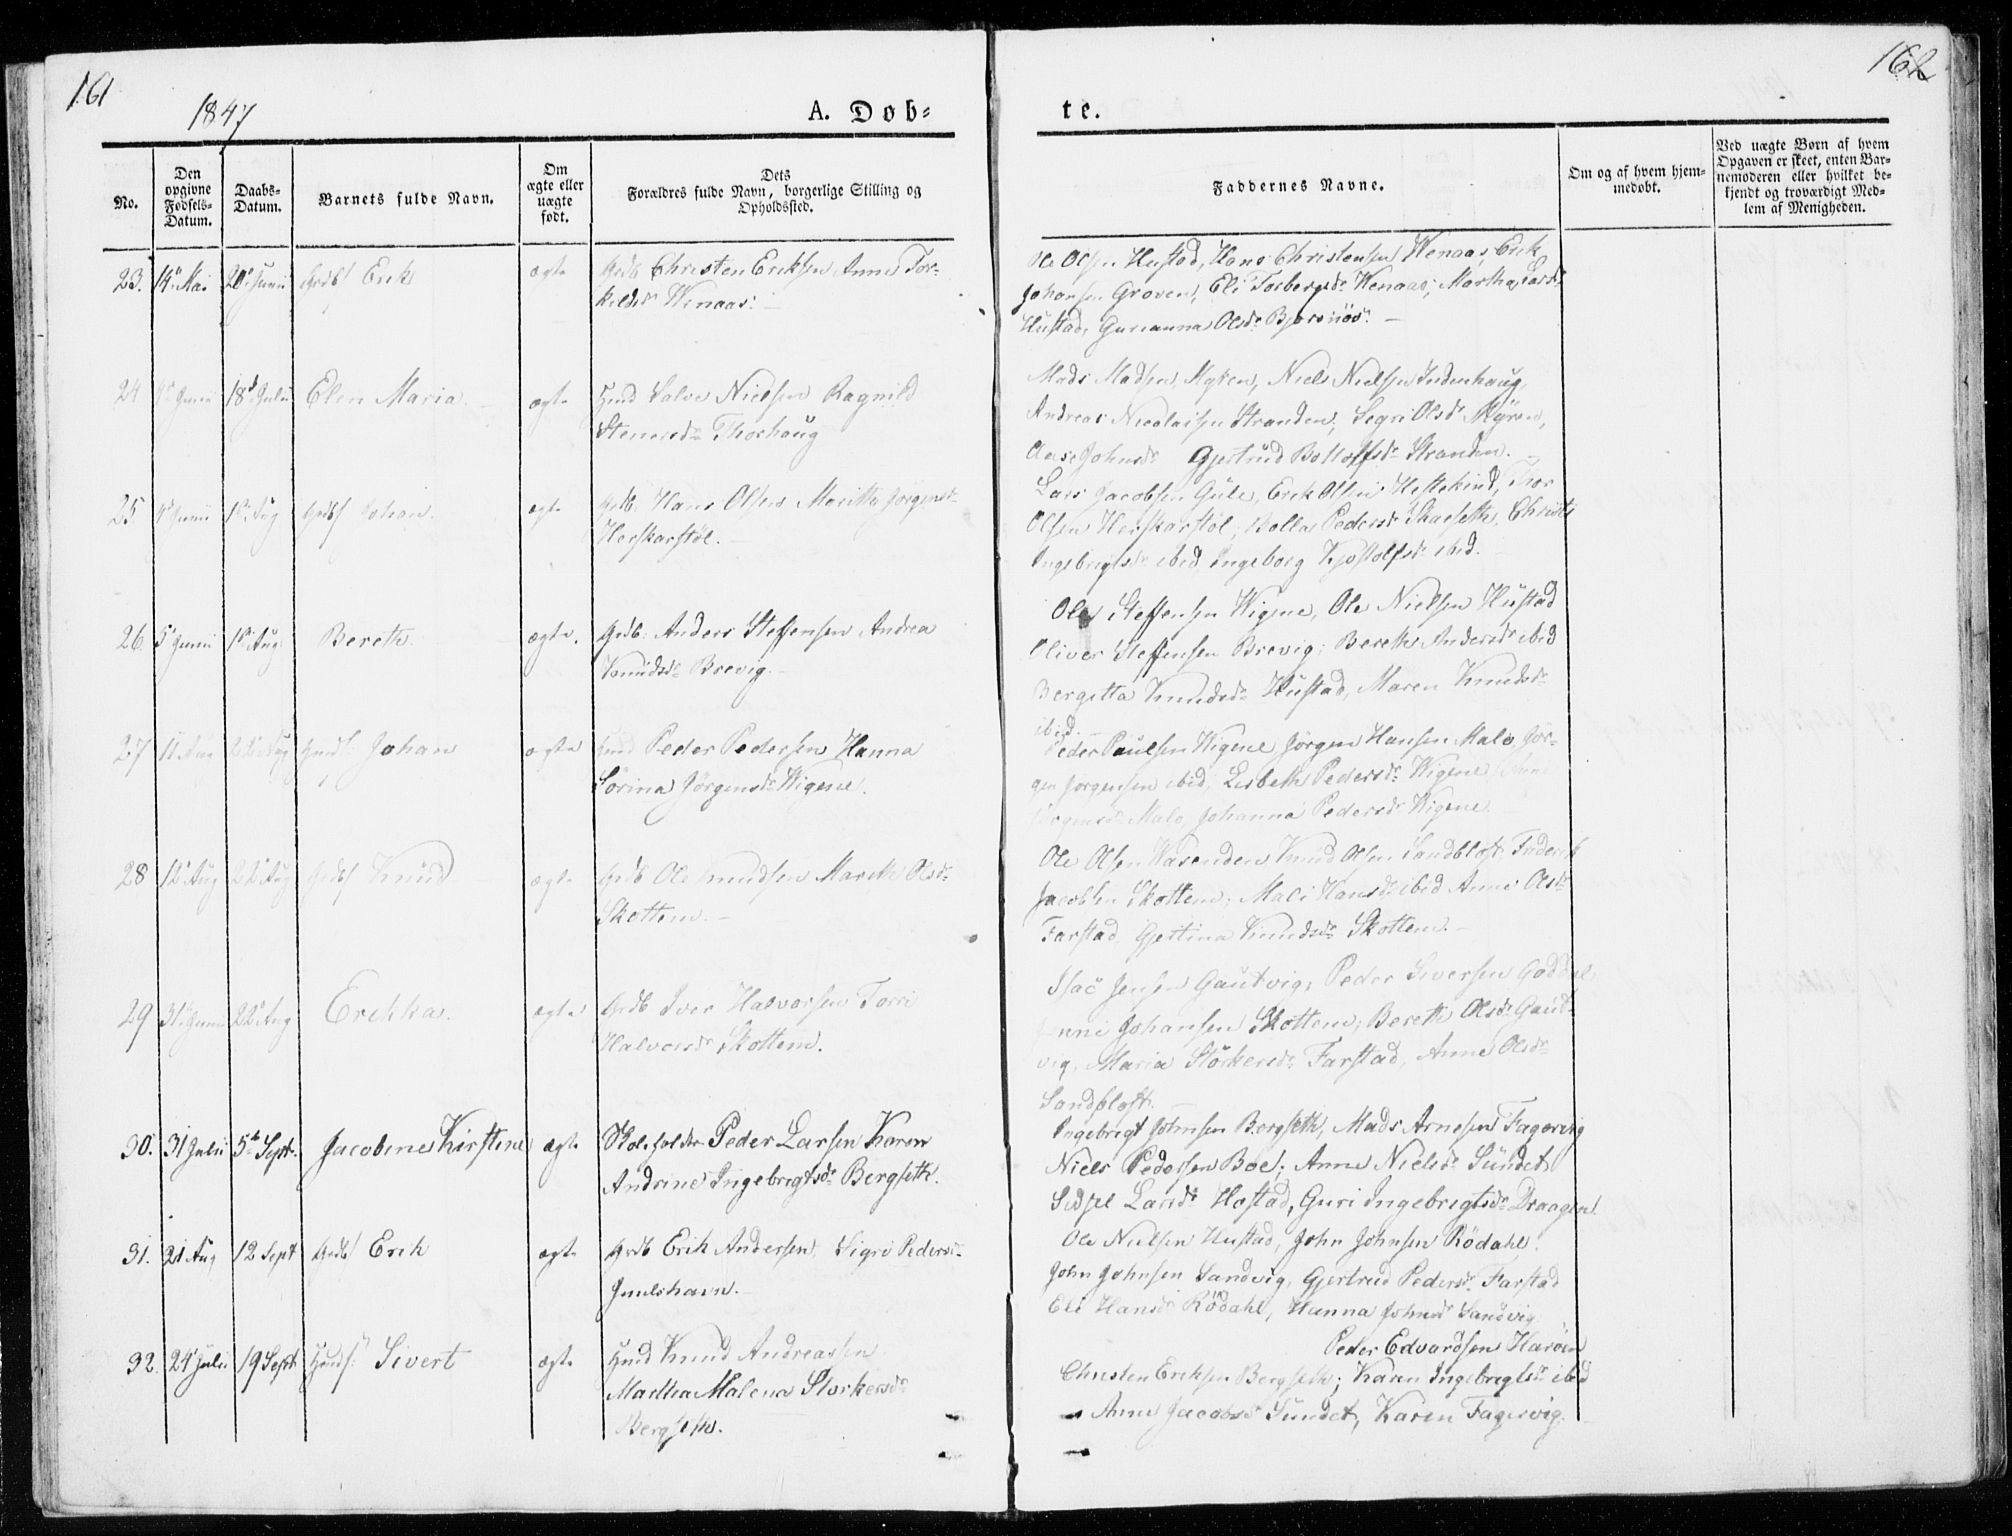 161
162
1847
A. Døb-
te.
No.
Den opgivne Fødsels-Datum.
Daabs-Datum.
Barnets fulde Navn.
Om ægte eller uægte født.
Dets Forældres fulde Navn, borgerlige Stilling og Opholdssted.
Faddernes Navne.
Om og af hvem hjemmedøbt.
Ved uægte Børn af hvem Opgaven er skeet, enten Barnemoderen eller hvilket bekjendt og troværdigt Medlem af Menigheden.
23. 14 Mai 20 Junii Grdb Erik ægte Grdb Christen Eriksen Anne Tor-
kilds Wenaas.
Ole Olsen Hustad, Hans Christensen Wenaas, Erik
Johansen Groven, Eli Torbergsdr Wenaas, Martha Larsdr
Hustad, Gurianna Olsdr Bjørsnøs.
24 Junii 18 Julii Elen Maria ægte Hmd Salve Nielsen Ragnild
Stenersdr Thorhaug
Mads Madsen Myren, Niels Nielsen Indenhaug
Andreas Nicolaisen Stranden, Segri Olsdr Myren,
Aase Johnsdr Gjertrud Bottolfsdr Stranden.
25 Junii 1 Aug Grdbs Johan. ægte Grdb Hans Olsen Maritta Jørgensdr
Herskarstøl.
Lars Jacobsen Gule, Erik Olsen Hestekind, Thor
Olsen Herskarstøl, Bolla Pedersdr Skarseth, Christi
Ingebrigtsdr ibid Ingeborg Kjøstolfsdr ibid.
26. 5 Junii 1 Aug. Bereth. ægte. Grdb. Anders Steffensen Andrea
Knudsdr Brevig.
Ole Steffensen Wigene, Ole Nielsen Hustad
Oliver Steffensen Brevig, Bereth Andersdr ibid
Bergitta Knudsdr Hustad, Maren Knudsdr
ibid.
27 Johan ægte Hmd Peder Pedersen Hanna
Sørina Jørgensdr Wigene.
Peder Paulsen Wigene Jørgen Hansen Malo, Jør-
gen Jørgensen ibid, Lisbeth Pedersdr Wigene Anne
Jørgensdr Malo, Johanna Pedersdr Wigene
28 12 Aug 22 Aug Grdbs Knud ægte Grdb Ole Knudsen Marith Olsdr
Skottem.
Ole Olsen Wasenden Knud Olsen Sandbløst, Frederik
Jacobsen Skottem, Mali Hansdr ibid Anne Olsdr
Farstad Gjertina Knudsdr Skottem.
29 31 22 Aug Erekka. ægte Grdb Iver Halvorsen Torri
Halvorsdr Skottem.
Isac Jensen Gautvig, Peder Siversen
Johansen Skottem, Bereth Olsdr Gaut-
vig, Maria Størkersdr Farstad, Anne Olsdr
Sandbløst.
30. 31 Julii 5 Sept. Jacobine Kirstine ægte Skoleholder Peder Larsen Karen
Andrine Ingebrigtsdr Bergseth.
Ingebrigt Johnsen Bergseth, Mads Arnesen Fagervig
Niels Pedersen Boe, Anne Nielsdr Sundet
Sidsel Larsdr Hostad, Guri Ingebrigtsdr Draagen.
31. 21 Aug 12 Sept Grdbs Erik ægte Grdb Erik Andersen, Sigri Pedersdr
Juulshavn.
Ole Nielsen Hustad, John Johnsen Rödahl.
John Johnsen Sandvig, Gjertrud Pedersdr Farstad
Eli Hansdr Rödahl, Hanna Johnsdr Sandvig
32. 24 Julii 19 Sept Sivert ægte Hmd Knud Andreassen
Martha Malena Størkersdr
Bergseth.
Peder Edvardsen Harøen
Christen Eriksen Bergseth, Karen Ingebrigtsdr ibid
Anne Jacobsdr Sundet, Karen Fagervig.